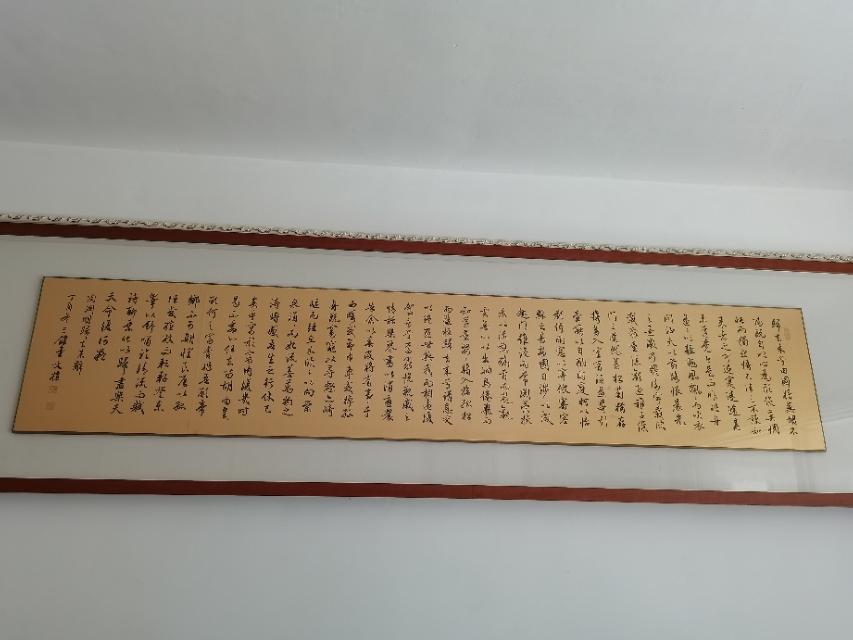 歸去来兮田園將蕪胡不
歸既自以心為形役奚惆
悵而獨悲悟已往之不諫知
来者之可追實迷途其
未遠覺今是而昨非舟
遙遙以輕颺風飄飄而吹衣
問征夫以前路恨晨光
之熹微乃瞻衡宇載欣
載奔僮僕歡迎稚子候
門三徑就荒松菊猶存
攜幼入室有酒盈樽引
壺觴以自酌眄庭柯以怡
顏倚南窗以寄傲審容
膝之易安園日涉以成
趣門雖設而常關策扶
老以流憩時矯首而遐觀
雲無心以出岫鳥倦飛而
知還景翳翳以將入撫孤松
而盤桓歸去来兮請息交
以絕遊世與我而相違復
駕言兮焉求悅親戚之
情話樂琴書以消憂農
人告余以春及將有事于
西疇或命巾車或棹孤
舟既窈窕以尋壑亦崎
嶇而經丘木欣欣以向榮
泉涓涓而始流善萬物之
得時感吾生之行休已
矣乎寓形宇内復幾時
曷不委心任去留胡為遑
遑欲何之富貴非吾願帝
鄉不可期懷良辰以孤
往或植杖而耘耔登東
皋以舒嘯臨清流而賦
詩聊乘化以歸盡樂夫
天命復奚疑
陶淵明歸去来辭